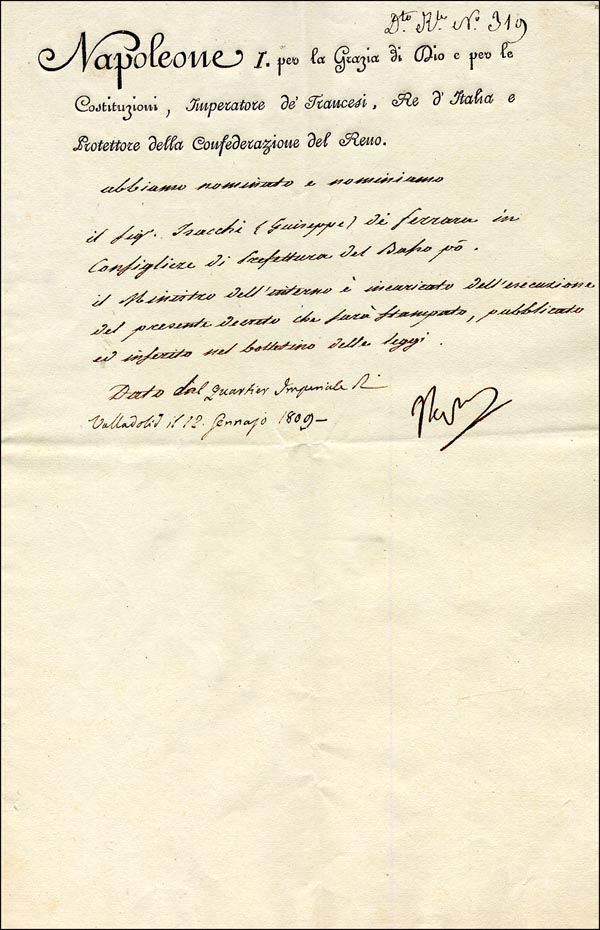 D.to R.le N.o 319
Napoleone I. per la Grazia di Dio e per le
Costituzioni, Imperatore de' Francesi, Re d'Italia e
Protettore della Confederazione del Reno.
abbiamo nominato e nominiamo
il Sig.r Isacchi (Guiseppe) di ferrara in
Consigliere di Prefettura del Basso pò.
il Ministro dell'interno è incaricato dell'esecuzione
del presente decreto che sarà Stampato, pubblicato
ed inserito nel bollettino delle leggi.
Dato dal Quartier Imperiale di
Valladolid il 12. Gennajo 1809 -